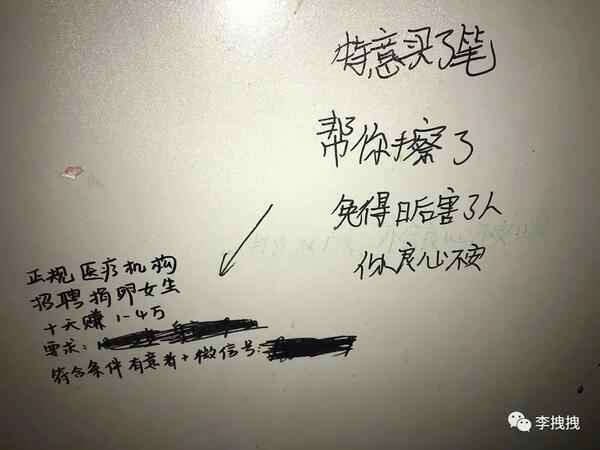 特意买了笔
帮你擦了
免得日后害了人
你良心不安
正规医疗机构
招聘捐卵女生
十天赚1-4万
要求:
符合条件有意者+微信号:
李拽拽